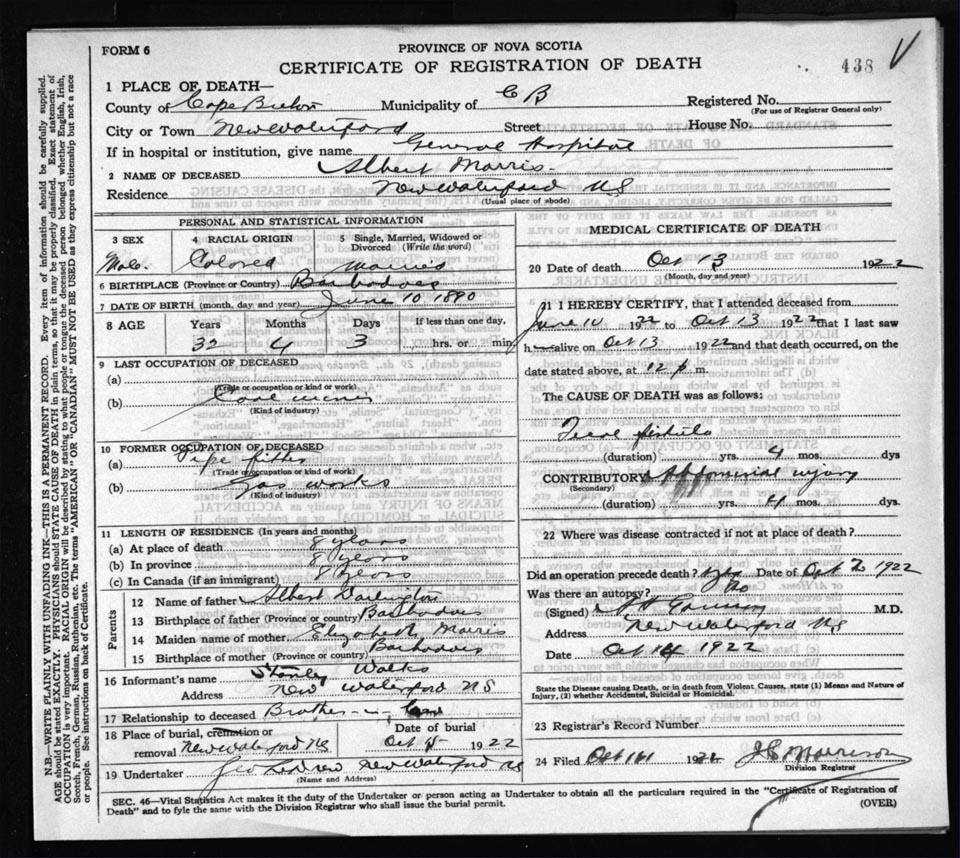 FORM 6
PROVINCE OF NOVA SCOTIA
CERTIFICATE OF REGISTRATION OF DEATH
438
1 PLACE OF DEATH—
County of Cape Breton Municipality of C B Registered No.
(For use of Registrar General only)
City or Town New Waterford Street House No.
If in hospital or institution, give name General Hospital
2 NAME OF DECEASED Albert Morris
Residence New Waterford N S
(Usual place of abode)
PERSONAL AND STATISTICAL INFORMATION
3 SEX 4 RACIAL ORIGIN 5 Single, Married, Widowed or Divorced (Write the word)
Male Colored Married
6 BIRTHPLACE (Province or Country) Barbadoes
7 DATE OF BIRTH (month, day and year) June 10 1890
8 AGE Years Months Days If less than one day,
32 4 3 hrs. or min.
9 LAST OCCUPATION OF DECEASED
(a)
(Trade or occupation or kind of work)
(b) Coal miner
(Kind of industry)
10 FORMER OCCUPATION OF DECEASED
(a) Pipe fitter
(Trade or occupation or kind of work)
(b) Gas works
(Kind of industry)
11 LENGTH OF RESIDENCE (In years and months)
(a) At place of death 8 years
(b) In province 8 years
(c) In Canada (if an immigrant) 8 years
Parents
12 Name of father Albert Darlington
13 Birthplace of father (Province or country) Barbadoes
14 Maiden name of mother Elizabeth Morris
15 Birthplace of mother (Province or country) Barbadoes
16 Informant's name Stanley Walks
Address New Waterford N S
17 Relationship to deceased Brother in law
18 Place of burial, cremation or removal New Waterford NS
Date of burial Oct 1922
19 Undertaker New Waterford NS
(Name and Address)
MEDICAL CERTIFICATE OF DEATH
20 Date of death Oct 13 1922
(Month, day and year)
21 I HEREBY CERTIFY, that I attended deceased from
June 10 1922 to Oct 13 1922 that I last saw
h alive on Oct 13 1922 and that death occurred, on the
date stated above, at 12 p m.
The CAUSE OF DEATH was as follows:
Fecal fistula
(duration) yrs. 4 mos. dys
CONTRIBUTORY Abdominal injury
(Secondary)
(duration) yrs. 4 mos. dys.
22 Where was disease contracted if not at place of death?
Did an operation precede death? yes Date of Oct 2 1922
Was there an autopsy? No
(Signed) M.D.
Address New Waterford NS
Date Oct 14 1922
State the Disease causing Death, or in death from Violent Causes, state (1) Means and Nature of Injury, (2) whether Accidental, Suicidal or Homicidal.
23 Registrar's Record Number
24 Filed Oct 1922 Morrison
Division Registrar
SEC. 46—Vital Statistics Act makes it the duty of the Undertaker or person acting as Undertaker to obtain all the particulars required in the "Certificate of Registration of
Death" and to fyle the same with the Division Registrar who shall issue the burial permit.
(OVER)
N.B.—WRITE PLAINLY WITH UNFADING INK—THIS IS A PERMANENT RECORD. Every item of information should be carefully supplied.
AGE should be stated EXACTLY. PHYSICIANS should STATE CAUSE OF DEATH in plain terms, so that it may be properly classified. Exact statement of
OCCUPATION is very important. RACIAL ORIGIN will be described by stating to what people or tongue the deceased person belonged whether English, Irish,
Scotch, French, German, Russian, Ruthonian, etc. The terms "AMERICAN" OR "CANADIAN" MUST NOT BE USED as they express citizenship but not a race
or people. See instructions on back of Certificate.